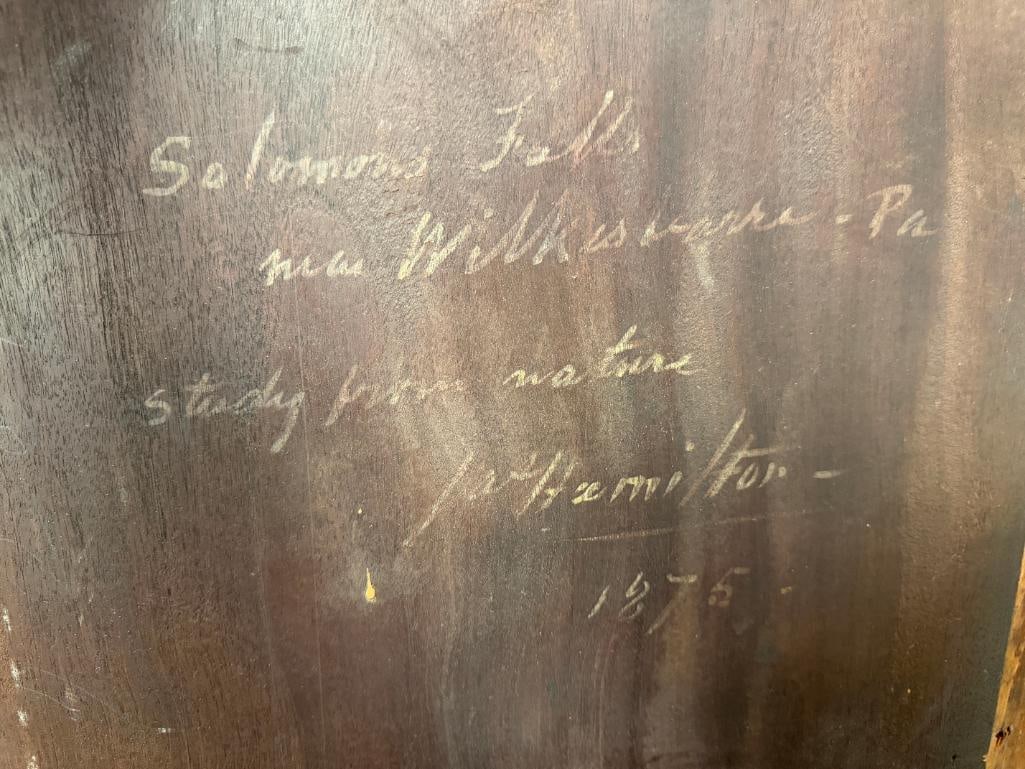 Solomons Falls
near Wilkesbarre - Pa
study from nature
Hamilton -
1875 -